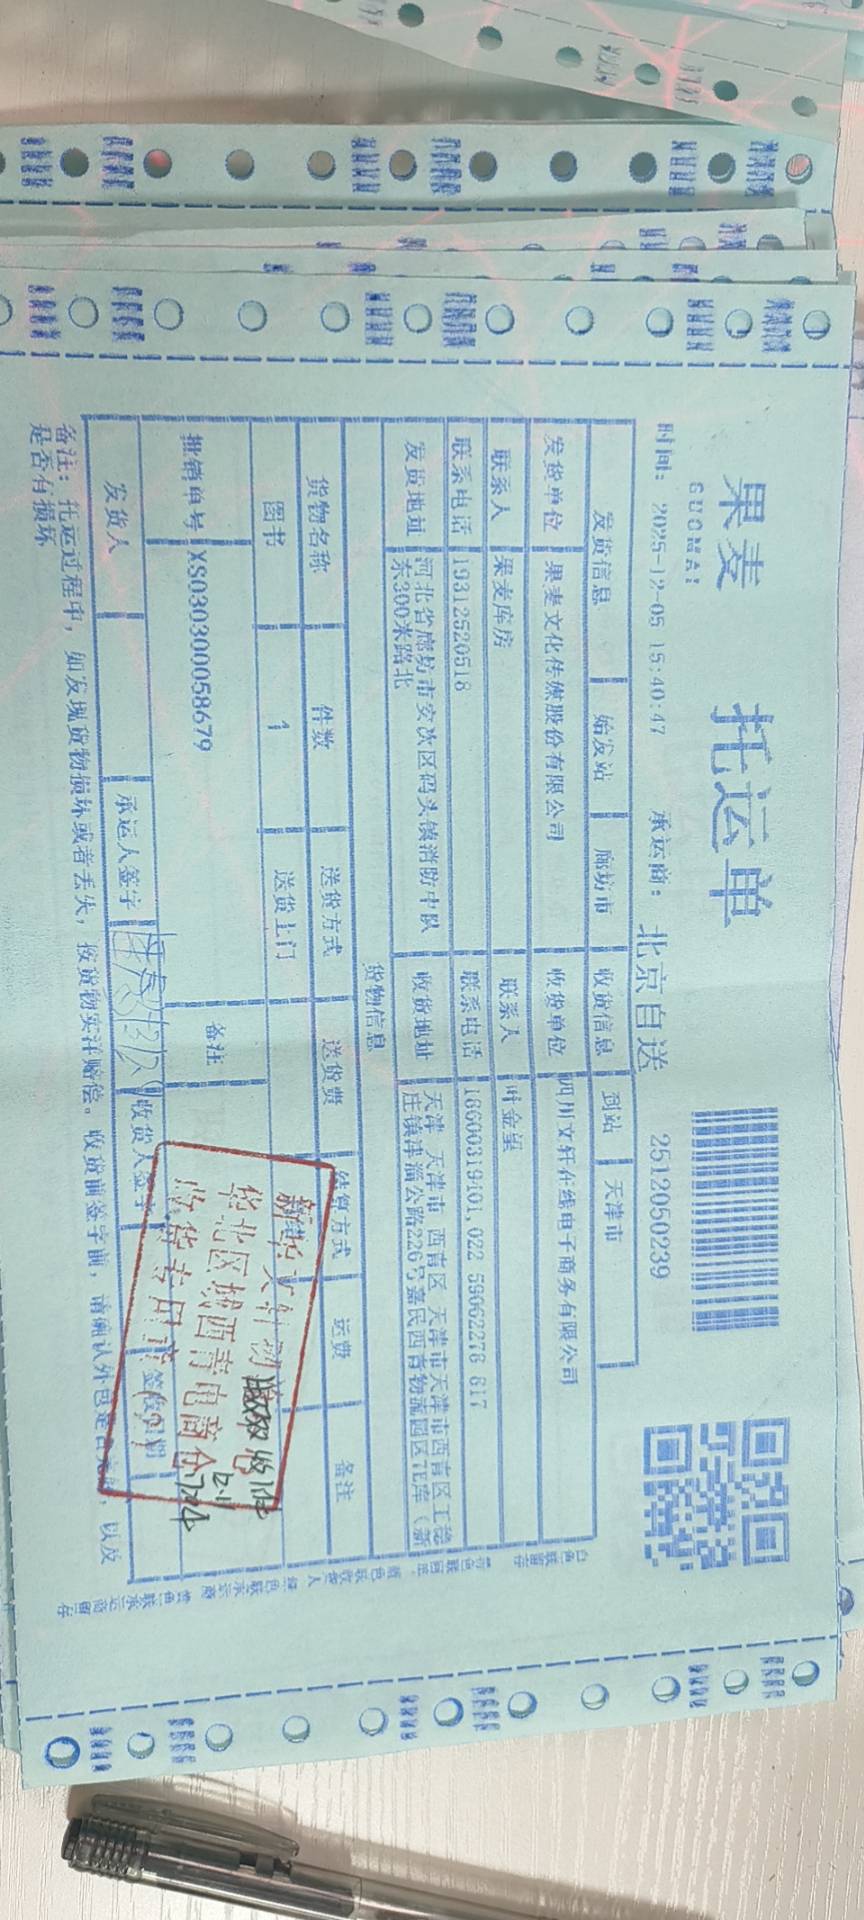 果麦 托运单
GUOMAI
时间: 2025-12-05 15:40:47 承运商: 北京自送 2512050239
发货信息 始发站 廊坊市 收货信息 到站 天津市
发货单位 果麦文化传媒股份有限公司 收货单位 四川文轩在线电子商务有限公司
联系人 果麦库房 联系人 叶金星
联系电话 19312520518 联系电话 18600319101,022 59062278 817
发货地址 河北省廊坊市安次区码头镇消防中队东300米路北 收货地址 天津 天津市 西青区 天津市天津市西青区王稳庄镇津淄公路226号嘉民西青物流园区7E库(新
货物信息
货物名称 件数 送货方式 送货费 结算方式 运费 备注
图书 1 送货上门
批销单号 XS030300058679 备注
发货人 承运人签字 收货人签字 签收日期
备注: 托运过程中, 如发现货物损坏或者丢失, 按货物实洋赔偿。收货前签字前, 请确认外包是否完好, 以及
是否有损坏
新华文轩物
华北区域西青电商仓
收货专用章
白色联留存